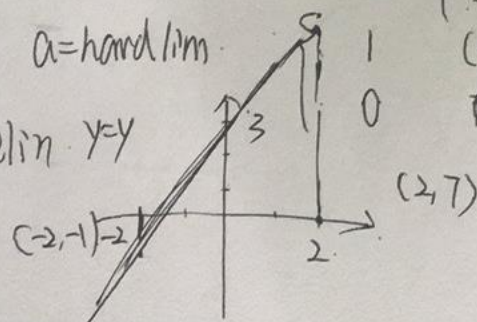 a=hardlim
1
0
lin y=y
3
(2,7)
(-2,-1) -2
2